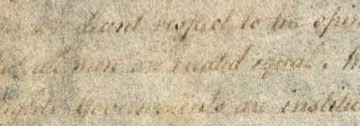 decent respect to the opin
all men are created equal.
Governments are institu